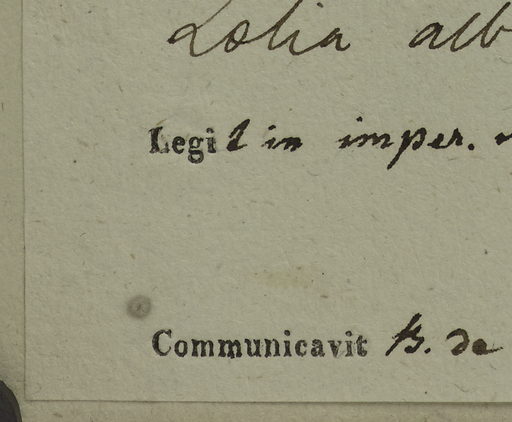 Lœlia alb
Legit in imper.
Communicavit B. de